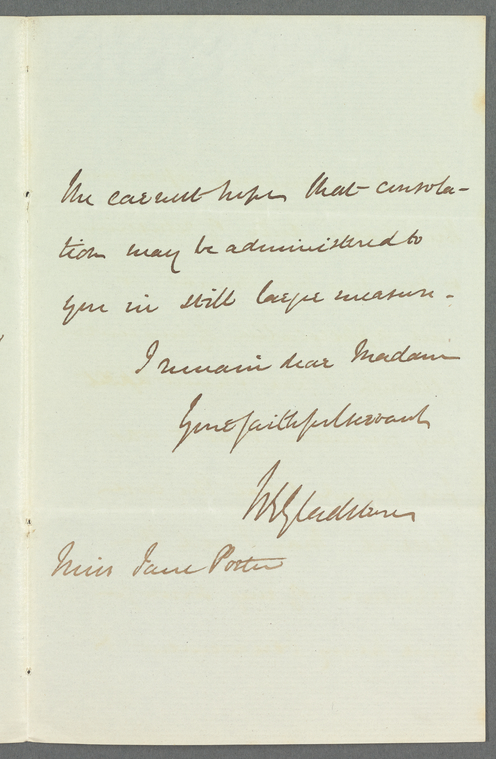 the earnest hope that consola-
tion may be administered to
you in still larger measure.
I remain dear Madam
Your faithful servant
WEGladstone
Miss Jane Porter